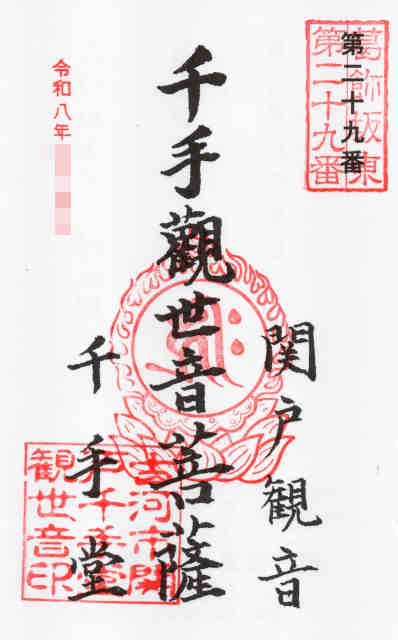 葛飾坂東
第二十九番
第二十九番
関戸観音
千手觀世音菩薩
千手堂
令和八年
古河市関
戸千手堂
観世音印